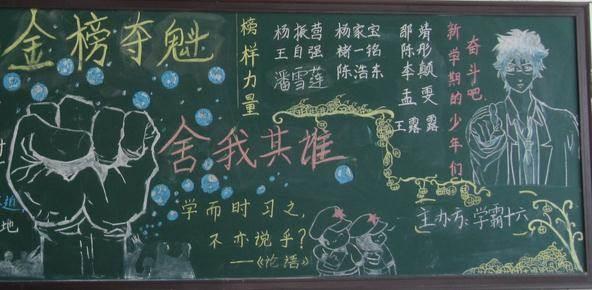 金榜夺魁
榜样力量
杨振营 杨家宝
王自强 楮一铭
潘雪莲 陈浩东
邹婧彤
陈颠
李雯
孟露
王露
新学期的少年们
奋斗吧
舍我其谁
学而时习之,
不亦说乎?
——《论语》
主办方:学霸十六
地